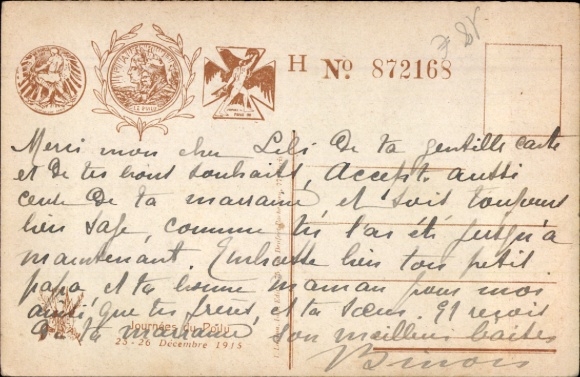 H No. 872168
Merci mon cher Lili de ta gentille carte
et de tes bons souhaits, Accepte aussi
ceux de ta marraine et soit toujours
bien sage, comme tu l'as été jusqu'à
maintenant. Embrasse bien ton petit
papa et ta bonne maman pour moi
que tes frères, et ta sœur. Et reçoit
de ta marraine son meilleur baiser
Journées du Poilu
25-26 Décembre 1915